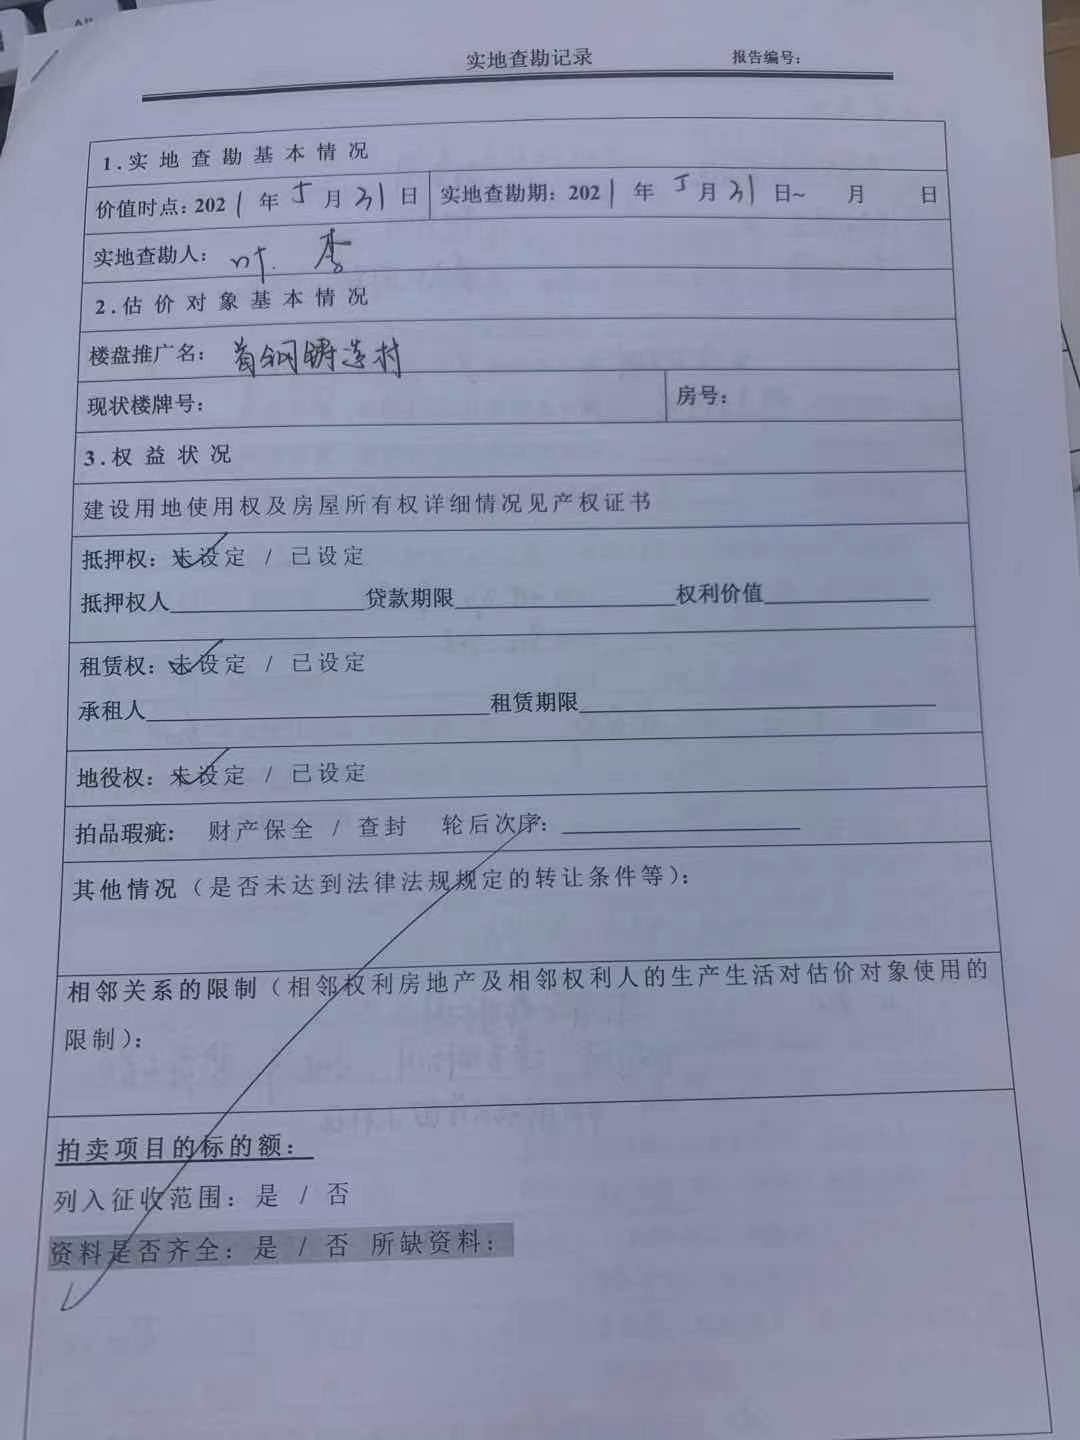 实地查勘记录 报告编号：
1.实地查勘基本情况
价值时点：2021年5月31日 实地查勘期：2021年5月31日~ 月 日
实地查勘人：叶. 李
2.估价对象基本情况
楼盘推广名：首钢铸造村
现状楼牌号： 房号：
3.权益状况
建设用地使用权及房屋所有权详细情况见产权证书
抵押权：未设定 / 已设定
抵押权人 贷款期限 权利价值
租赁权：未设定 / 已设定
承租人 租赁期限
地役权：未设定 / 已设定
拍品瑕疵： 财产保全 / 查封 轮后次序：
其他情况（是否未达到法律法规规定的转让条件等）：
相邻关系的限制（相邻权利房地产及相邻权利人的生产生活对估价对象使用的
限制）：
拍卖项目的标的额：
列入征收范围：是 / 否
资料是否齐全：是 / 否 所缺资料：